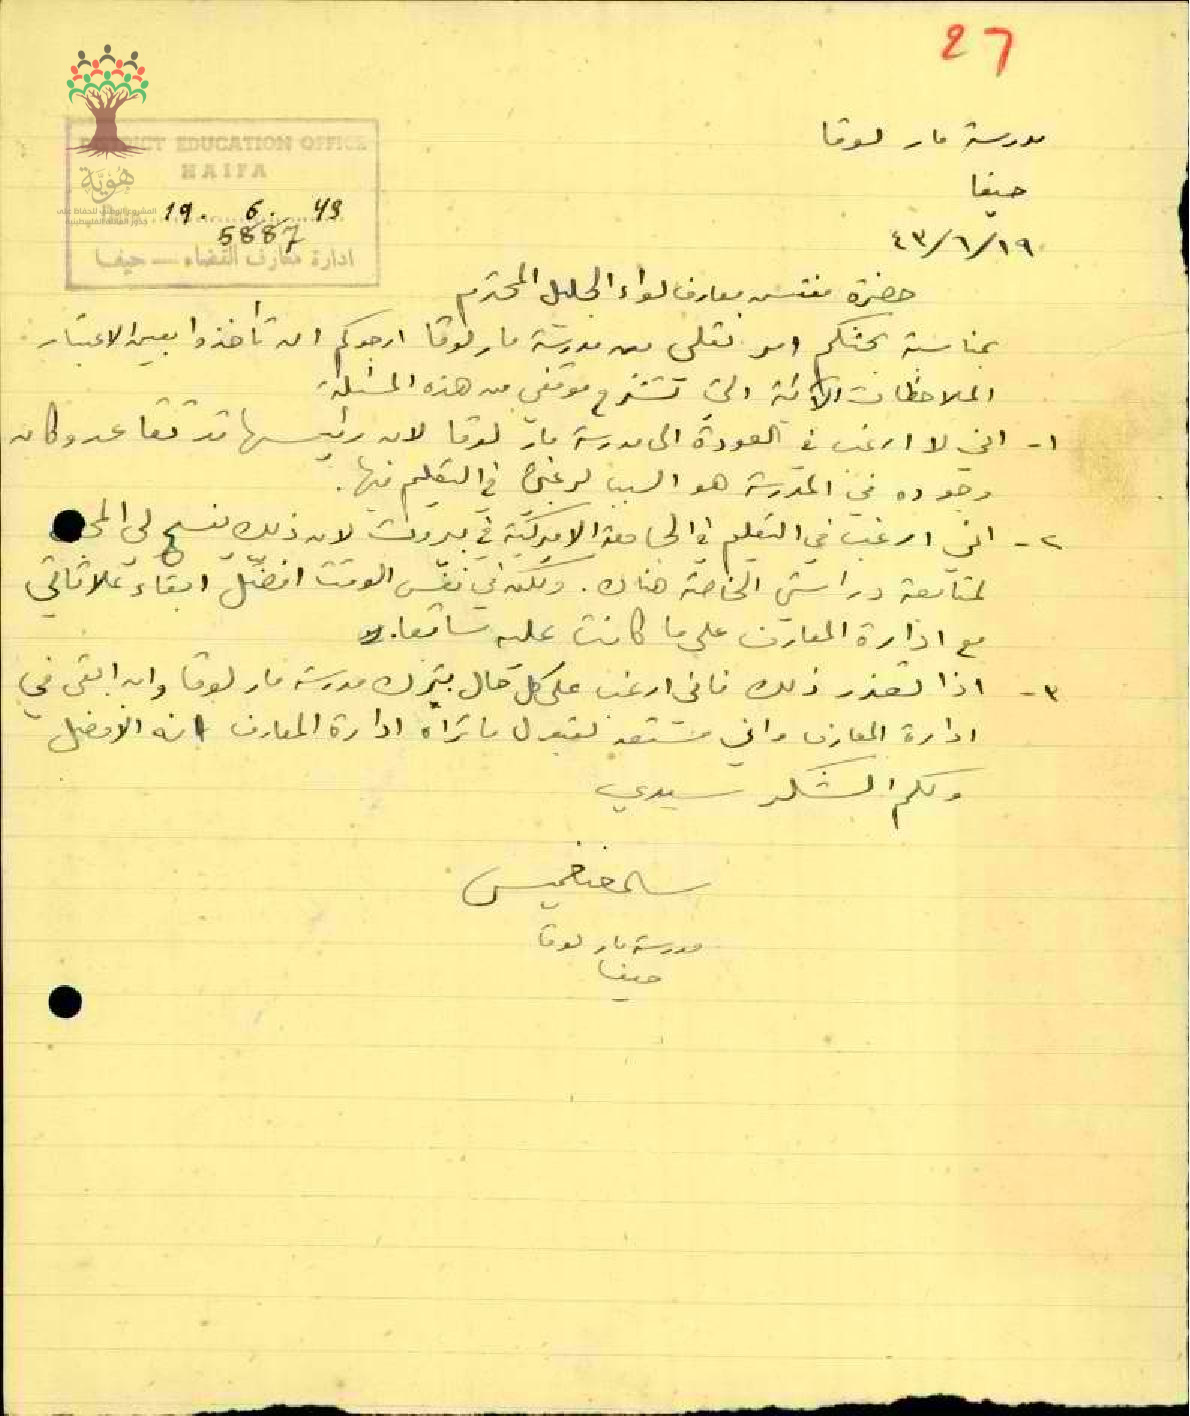 27
مدرسة مار لوقا
حيفا
٤٣/٦/١٩
DISTRICT EDUCATION OFFICE
HAIFA
19. 6. 43
5887
ادارة معارف القضاء — حيفا
هُويَّة
المشروع الوطني للحفاظ على
جذور العائلة الفلسطينية
حضرة مفتش معارف لواء الجليل المحترم
بمناسبة بحثكم امر نقلي من مدرسة مار لوقا ارجوكم ان تأخذوا بعين الاعتبار
الملاحظات الآتية التي تشرح موقفي من هذه المسئلة
١- اني لا ارغب في العودة الى مدرسة مار لوقا لان رئيسها قد تقاعد وكان
وجوده في المدرسة هو السبب لرغبتي في التعليم فيها.
٢- اني ارغب في التعليم في الجامعة الاميركية في بيروت لان ذلك يفسح لي
لمتابعة دراستي الخاصة هناك. ولكنني في نفس الوقت افضّل ابقاء علاقاتي
مع ادارة المعارف على ما كانت عليه سابقا.
٣- اذا تعذر ذلك فاني ارغب على كل حال بترك مدرسة مار لوقا وان ابقى في
ادارة المعارف واني مستعد لقبول ما تراه ادارة المعارف انه الافضل
ولكم الشكر سيدي
خميس
مدرسة مار لوقا
حيفا